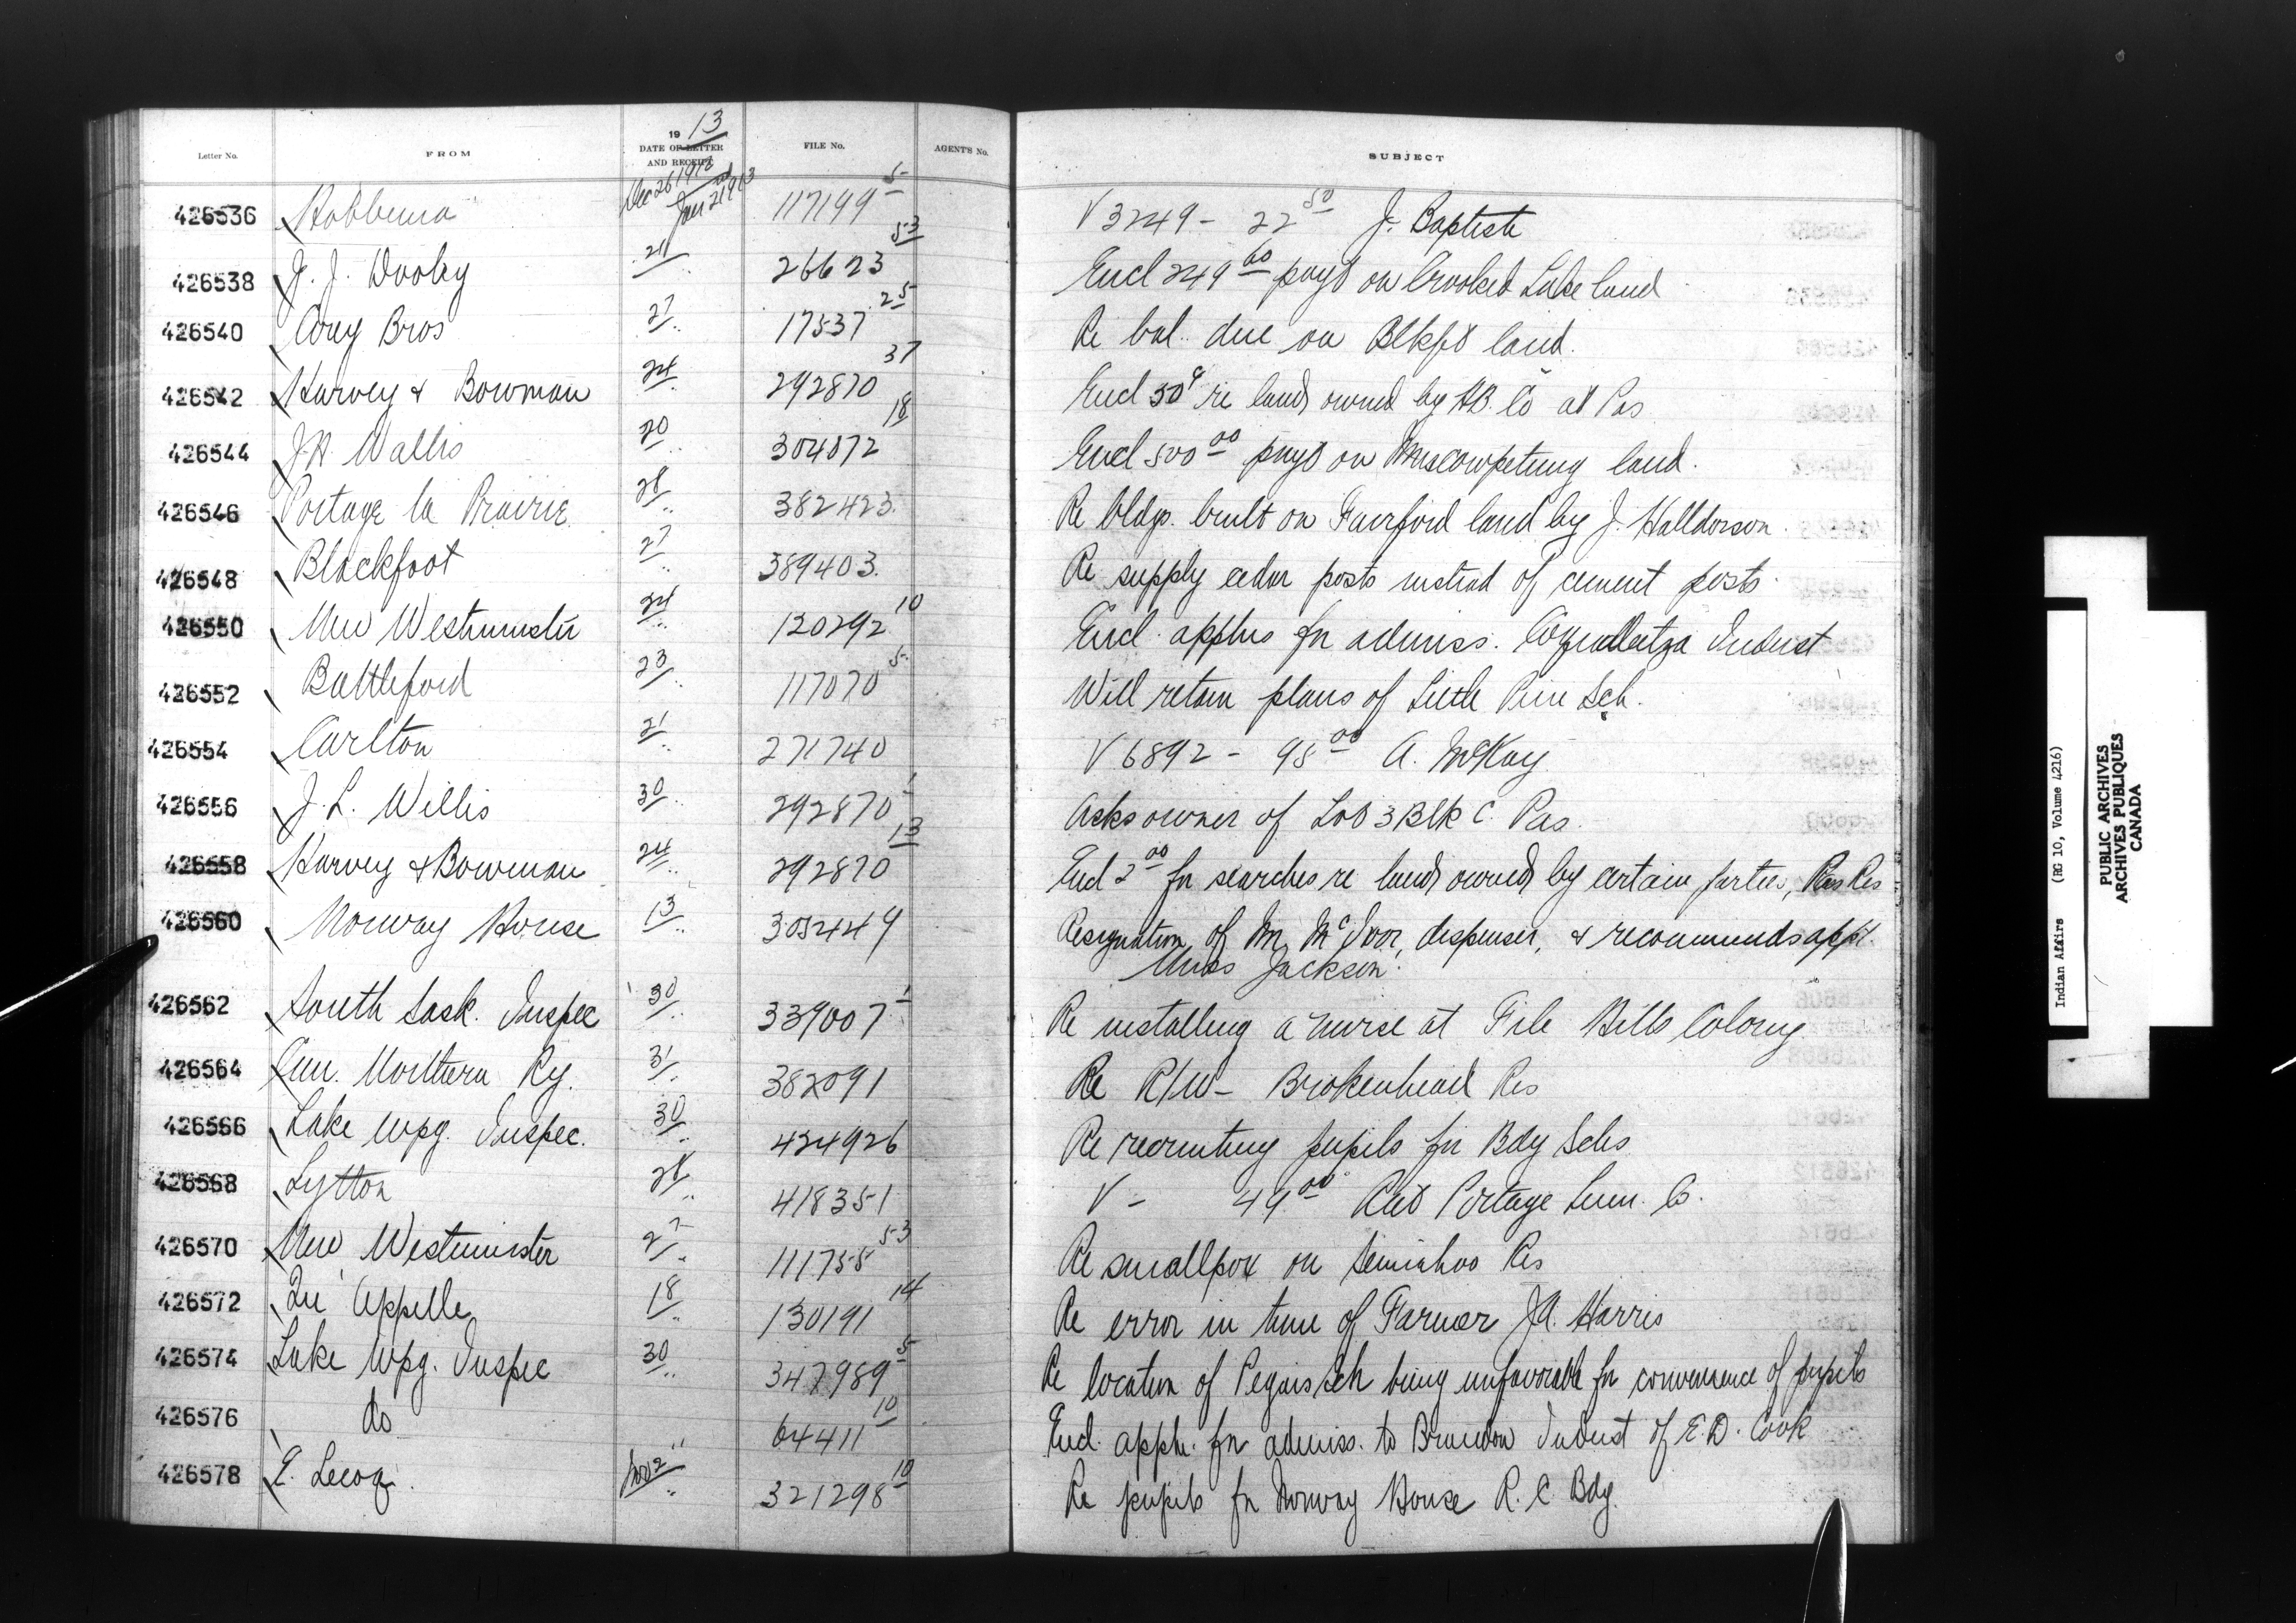 19 13
Letter No. FROM DATE OF LETTER AND RECEIPT FILE No. AGENT'S No. SUBJECT
426536 Hobbema Dec 26 1912 Jan 2nd 1913 117199 5 V 3249 - 22 50 J. Baptiste
426538 J. J. Dooley 21 " 26623 53 Encl 249 60 payt on Crooked Lake land
426540 Corey Bros 27 " 17537 25 Re bal. due on Blkft land.
426542 Harvey & Bowman 24 " 292870 37 Encl 50 c re land owned by H.B. Co at Pas
426544 J.H. Wallis 20 " 304072 18 Encl 500 00 payt on Muscowpetung land.
426546 Portage la Prairie 28 " 382423 Re bldgs. built on Fairford land by J. Halldorson.
426548 Blackfoot 27 " 389403. Re supply cedar posts instead of cement posts.
426550 New Westminster 24 " 120292 10 Encl. applns for admiss. Coqualeetza Indust
426552 Battleford 23 " 117070 5 Will retain plans of Little Pine Sch.
426554 Carlton 21 " 271740 V 6892 - 98 00 A. McKay
426556 J. L. Willis 30 " 292870 1 Asks owner of Lot 3 Blk C. Pas.
426558 Harvey & Bowman 24 " 292870 13 Encl 2 00 for searches re land owned by certain parties, Pas Res
426560 Norway House 13 " 305449 Resignation of Mr McIvor, dispenser, & recommends appt.
Miss Jackson.
426562 South Sask. Inspec 30 " 339007 1 Re installing a nurse at File Hills Colony
426564 Can. Northern Ry. 31 " 382091 Re R/W - Brokenhead Res
426566 Lake Wpg. Inspec. 30 " 424926 Re recruiting pupils for Bdg Schs
426568 Lytton 28 " 418351 V - 49 00 Rat Portage Lum. Co.
426570 New Westminster 27 " 111755 53 Re smallpox on Semiahoo Res
426572 Qu'Appelle 18 " 130191 14 Re error in time of Farmer J.A. Harris
426574 Lake Wpg. Inspec 30 " 347989 5 Re location of Peguis Sch being unfavorable for convenience of pupils
426576 do " 64411 10 Encl. appln. for admiss. to Brandon Indust of E.D. Cook
426578 E. Lecoq. Nov 2 " 321298 10 Re pupils for Norway House R.C. Bdg.
Indian Affairs (RG 10, Volume 4216)
PUBLIC ARCHIVES
ARCHIVES PUBLIQUES
CANADA